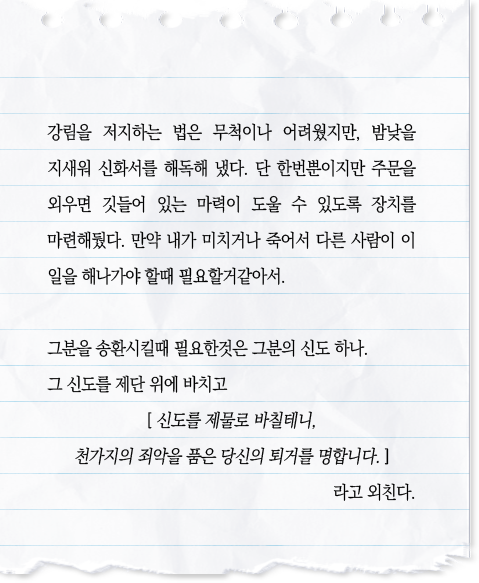 강림을 저지하는 법은 무척이나 어려웠지만, 밤낮을
지새워 신화서를 해독해 냈다. 단 한번뿐이지만 주문을
외우면 깃들어 있는 마력이 도울 수 있도록 장치를
마련해뒀다. 만약 내가 미치거나 죽어서 다른 사람이 이
일을 해나가야 할때 필요할거같아서.
그분을 송환시킬때 필요한것은 그분의 신도 하나.
그 신도를 제단 위에 바치고
[ 신도를 제물로 바칠테니,
천가지의 죄악을 품은 당신의 퇴거를 명합니다. ]
라고 외친다.